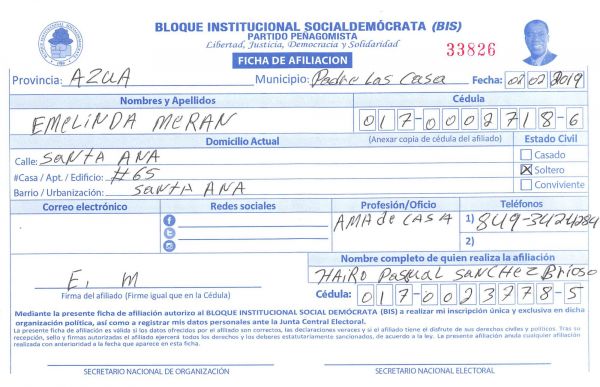 BLOQUE INSTITUCIONAL SOCIALDEMÓCRATA (BIS)
PARTIDO PEÑAGOMISTA
Libertad, Justicia, Democracia y Solidaridad
FICHA DE AFILIACION
33826
Provincia: AZUA Municipio: Padre Las Casa Fecha: 02/02/2019
Nombres y Apellidos Cédula
EMELINDA MERAN 017-0002718-6
Domicilio Actual (Anexar copia de cédula del afiliado) Estado Civil
Calle: SANTA ANA Casado
#Casa / Apt. / Edificio: #65 Soltero
Barrio / Urbanización: SANTA ANA Conviviente
Correo electrónico Redes sociales Profesión/Oficio Teléfonos
AMA de CASA 1) 849-3424284
2)
Nombre completo de quien realiza la afiliación
E. M HAIRO Pascual SANCHEZ Brioso
Firma del afiliado (Firme igual que en la Cédula) Cédula: 017-0023778-5
Mediante la presente ficha de afiliación autorizo al BLOQUE INSTITUCIONAL SOCIAL DEMÓCRATA (BIS) a realizar mi inscripción única y exclusiva en dicha
organización política, así como a registrar mis datos personales ante la Junta Central Electoral.
La presente ficha de afiliación es válida si los datos ofrecidos por el afiliado son correctos, las declaraciones veraces y si el afiliado tiene el disfrute de sus derechos civiles y políticos. Tras su
recepción, sello y firmas autorizadas el afiliado ejercerá todos los derechos y los deberes estatutariamente sancionados, de acuerdo a la ley. La presente afiliación anula cualquier afiliación
realizada con anterioridad a la fecha que aparece en esta ficha.
SECRETARIO NACIONAL DE ORGANIZACIÓN SECRETARIO NACIONAL ELECTORAL